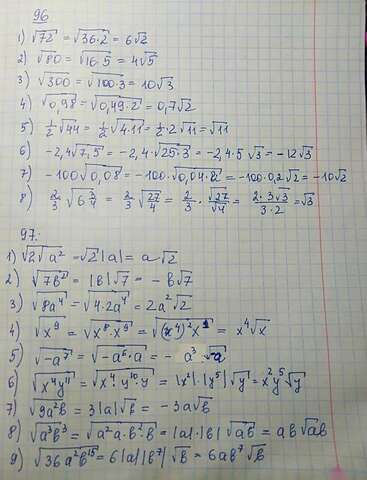 96
1) √72 = √36·2 = 6√2
2) √80 = √16·5 = 4√5
3) √300 = √100·3 = 10√3
4) √0,98 = √0,49·2 = 0,7√2
5) ½√44 = ½√4·11 = ½·2√11 = √11
6) -2,4√7,5 = -2,4·√25·3 = -2,4·5√3 = -12√3
7) -100√0,08 = -100·√0,04·2 = -100·0,2√2 = -10√2
8) 2/3 √6 3/4 = 2/3 √27/4 = 2/3 · √27/√4 = 2·3√3/3·2 = √3
97.
1) √2√a² = √2|a| = a√2
2) √7b² = |b|√7 = -b√7
3) √8a⁴ = √4·2a⁴ = 2a²√2
4) √x⁹ = √x⁸·x⁹ = √(x⁴)²x = x⁴√x
5) √-a⁷ = √-a⁶·a = -a³·√-a
6) √x⁴y¹¹ = √x⁴·y¹⁰·y = |x²|·|y⁵|√y = x²y⁵√y
7) √9a²b = 3|a|√b = -3a√b
8) √a³b³ = √a²a·b²·b = |a|·|b|√ab = ab√ab
9) √36a²b¹⁵ = 6|a||b⁷|√b = 6ab⁷√b